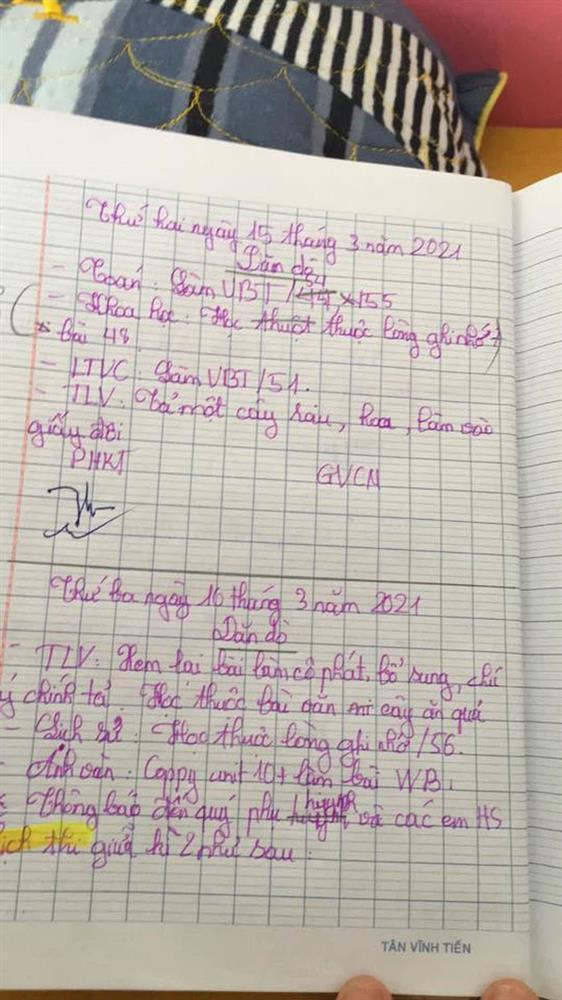 Thứ hai ngày 15 tháng 3 năm 2021
Dặn dò
- Toán: Làm VBT / 54, 55
- Khoa học: Học thuột thuộc lòng ghi nhớ
bài 48.
- LTVC: Làm VBT / 51.
- TLV: Tả một cây rau, hoa, làm vào
giấy đôi
PHKT GVCN
Thứ ba ngày 16 tháng 3 năm 2021
Dặn dò
- TLV: Xem lại bài làm cô phát, bổ sung, chú
ý chính tả. Học thuộc bài văn cây ăn quả
- Lịch sử: Học thuộc lòng ghi nhớ / 56.
- Anh văn: Coppy unit 10 + làm bài WB.
Thông báo đến quý phụ huynh và các em HS
lịch thi giữa kì 2 như sau:
TÂN VĨNH TIẾN